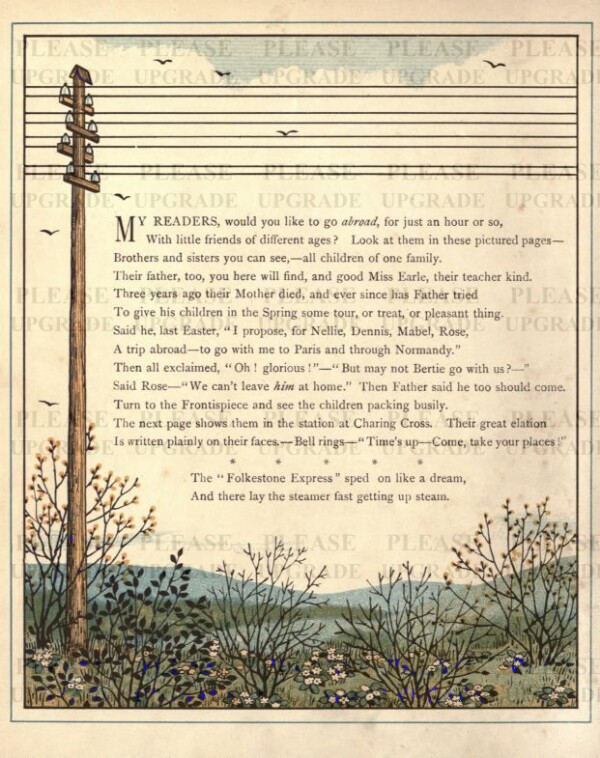 PLEASE PLEASE PLEASE PLEASE PLEASE
UPGRADE UPGRADE UPGRADE UPGRADE UPGRADE
PLEASE PLEASE PLEASE PLEASE PLEASE
UPGRADE UPGRADE UPGRADE UPGRADE UPGRADE
MY READERS, would you like to go abroad, for just an hour or so,
With little friends of different ages? Look at them in these pictured pages—
Brothers and sisters you can see,—all children of one family.
Their father, too, you here will find, and good Miss Earle, their teacher kind.
Three years ago their Mother died, and ever since has Father tried
To give his children in the Spring some tour, or treat, or pleasant thing.
Said he, last Easter, “I propose, for Nellie, Dennis, Mabel, Rose,
A trip abroad—to go with me to Paris and through Normandy.”
Then all exclaimed, “Oh! glorious!”—“But may not Bertie go with us?—”
Said Rose—“We can't leave him at home.” Then Father said he too should come.
Turn to the Frontispiece and see the children packing busily.
The next page shows them in the station at Charing Cross. Their great elation
Is written plainly on their faces.—Bell rings—“Time's up—Come, take your places!”
* * * * *
The “Folkestone Express” sped on like a dream,
And there lay the steamer fast getting up steam.
PLEASE PLEASE PLEASE PLEASE PLEASE
UPGRADE UPGRADE UPGRADE UPGRADE UPGRADE
PLEASE PLEASE PLEASE PLEASE PLEASE
UPGRADE UPGRADE UPGRADE UPGRADE UPGRADE